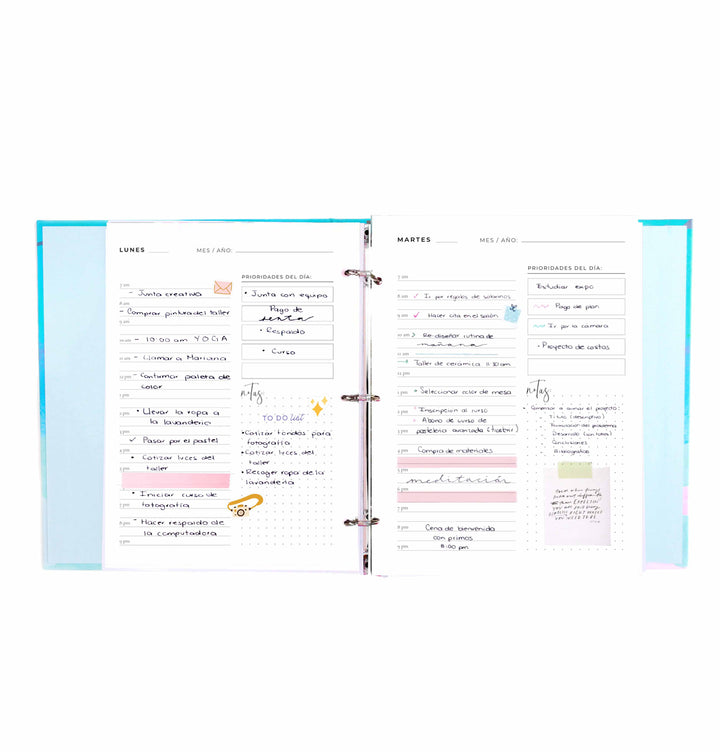 LUNES
MES / AÑO:
7 am
- Junta creativa
8 am
- Comprar pintura del taller
9 am
10 am - 10:00 am YOGA
11 am - Llamar a Mariana
12 pm - Confirmar paleta de
color
1 pm
2 pm • Llevar la ropa a
la lavandería
3 pm
✓ Pasar por el pastel
4 pm
• Cotizar luces del
5 pm taller
6 pm
• Iniciar curso de
7 pm fotografía
8 pm - Hacer respaldo de
la computadora
9 pm
PRIORIDADES DEL DÍA:
• Junta con equipo
Pago de
renta
• Respaldo
• Curso
notas
TO DO list
• Cotizar fondos para
fotografía
• Cotizar luces del
taller
• Recoger ropa de la
lavandería
MARTES
MES / AÑO:
7 am
8 am ✓ Ir por regalos de sobrinos
9 am ✓ Hacer cita en el salón
10 am Re-diseñar rutina de
mañana
11 am
Taller de cerámica 11:30am
12 pm
1 pm • Seleccionar color de mesa
2 pm • Inscripción al curso
• Abono de curso de
3 pm pastelería avanzada
4 pm Compra de materiales
5 pm
meditación
6 pm
7 pm
8 pm Cena de bienvenida
con primos
9 pm 8:00 pm
PRIORIDADES DEL DÍA:
Estudiar expo
Pago de plan
Ir por la cámara
• Proyecto de costos
notas:
• Comenzar a armar el proyecto:
- Título (descriptivo)
- del problema
- Desarrollo
- Conclusiones
- Bibliografías
YOU NEED TO BE